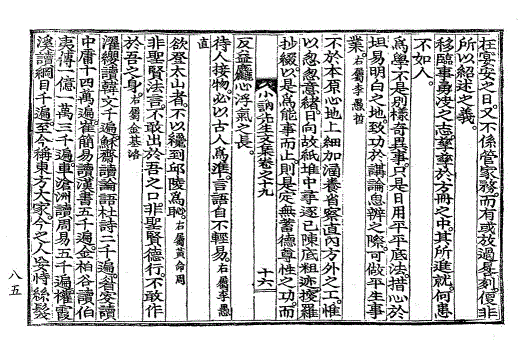 在宴安之日。又不係管家務。而有或放過晷刻。便非
所以紹述之義。
移臨事勇決之志。孳孳於方冊之中。其所進就。何患
不如人。
爲學不是別樣奇異事。只是日用平平底法。措心於
坦易明白之地。致功於講論思辨之際。可做平生事
業。右屬李愚哲
不於本原心地上細加涵養省察直內方外之工。惟
以忽忽意緖。日向故紙堆中尋逐已陳底粗迹。摸羅
抄綴以是爲能事而止。則是定無蓄德尊性之功。而
八訥先生文集卷之十九 十六
反益麤心浮氣之長。
待人接物。必以古人爲準。言語自不輕易。右屬李愚
直
欲登太山者。不以纔到邱陵爲恥。右屬黃命用
非聖賢法言。不敢出於吾之口。非聖賢德行。不敢作
於吾之身。右屬金基洛
濯纓讀韓文千遍。穌齋讀論語杜詩二千遍。眉安讀
中庸十四萬遍。崔簡易讀漢書五千遍。金柏谷讀伯
夷傳一億一萬三千遍。車滄洲讀周易五千遍。權霞
溪讀綱目千遍。至今稱東方大家。今之人妄恃絲髮
八五